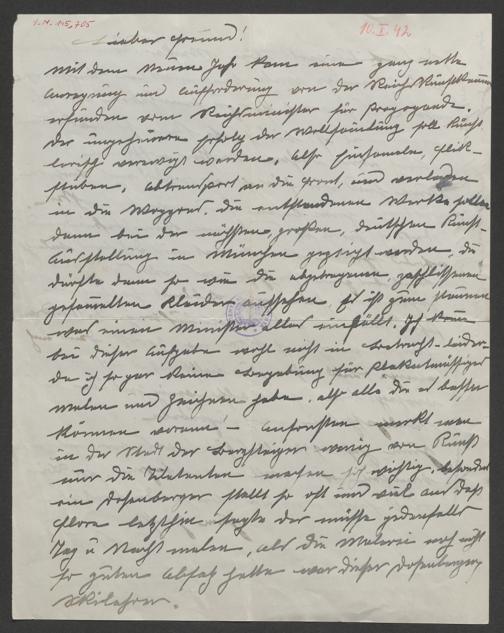 I.N. 145,705
10.I.42
Lieber Freund!
Mit dem Neuen Jahr kam eine ganz nette
Anregung und Aufforderung von der Reichskunstkammer
erfunden vom Reichsminister für Propaganda.
Der ungeheuere Erfolg der Wollsammlung soll künst-
lerisch verewigt werden. Also Einsammeln, Flick-
stuben, Abtransport an die Front, und verladen
in die Waggons. Die entstandenen Werke sollen
dann bei der nächsten, großen, deutschen Kunst-
Ausstellung in München gezeigt werden, die
dürfte dann so wie die abgetragenen, zerschlissenen
gesammelten Kleider aussehen. Es ist zum staunen
was einem Minister alles einfällt. Ich komme
bei dieser Aufgabe wohl nicht in Betracht - leider
da ich so gar keine Begabung für plakatmässiges
malen und zeichnen habe, also alle die es besser
können voran! - Ansonsten merkt man
in der Stadt der Bergsteiger wenig von Kunst
nur die Diletanten machen sich wichtig, besonders
ein Dosenberger stellt so oft und viel aus daß
Flora letzthin sagte der müsse jedenfalls
Tag u Nacht malen, als die Malerei noch nicht
so guten Absatz hatte war dieser Dosenberger
Skilehrer.